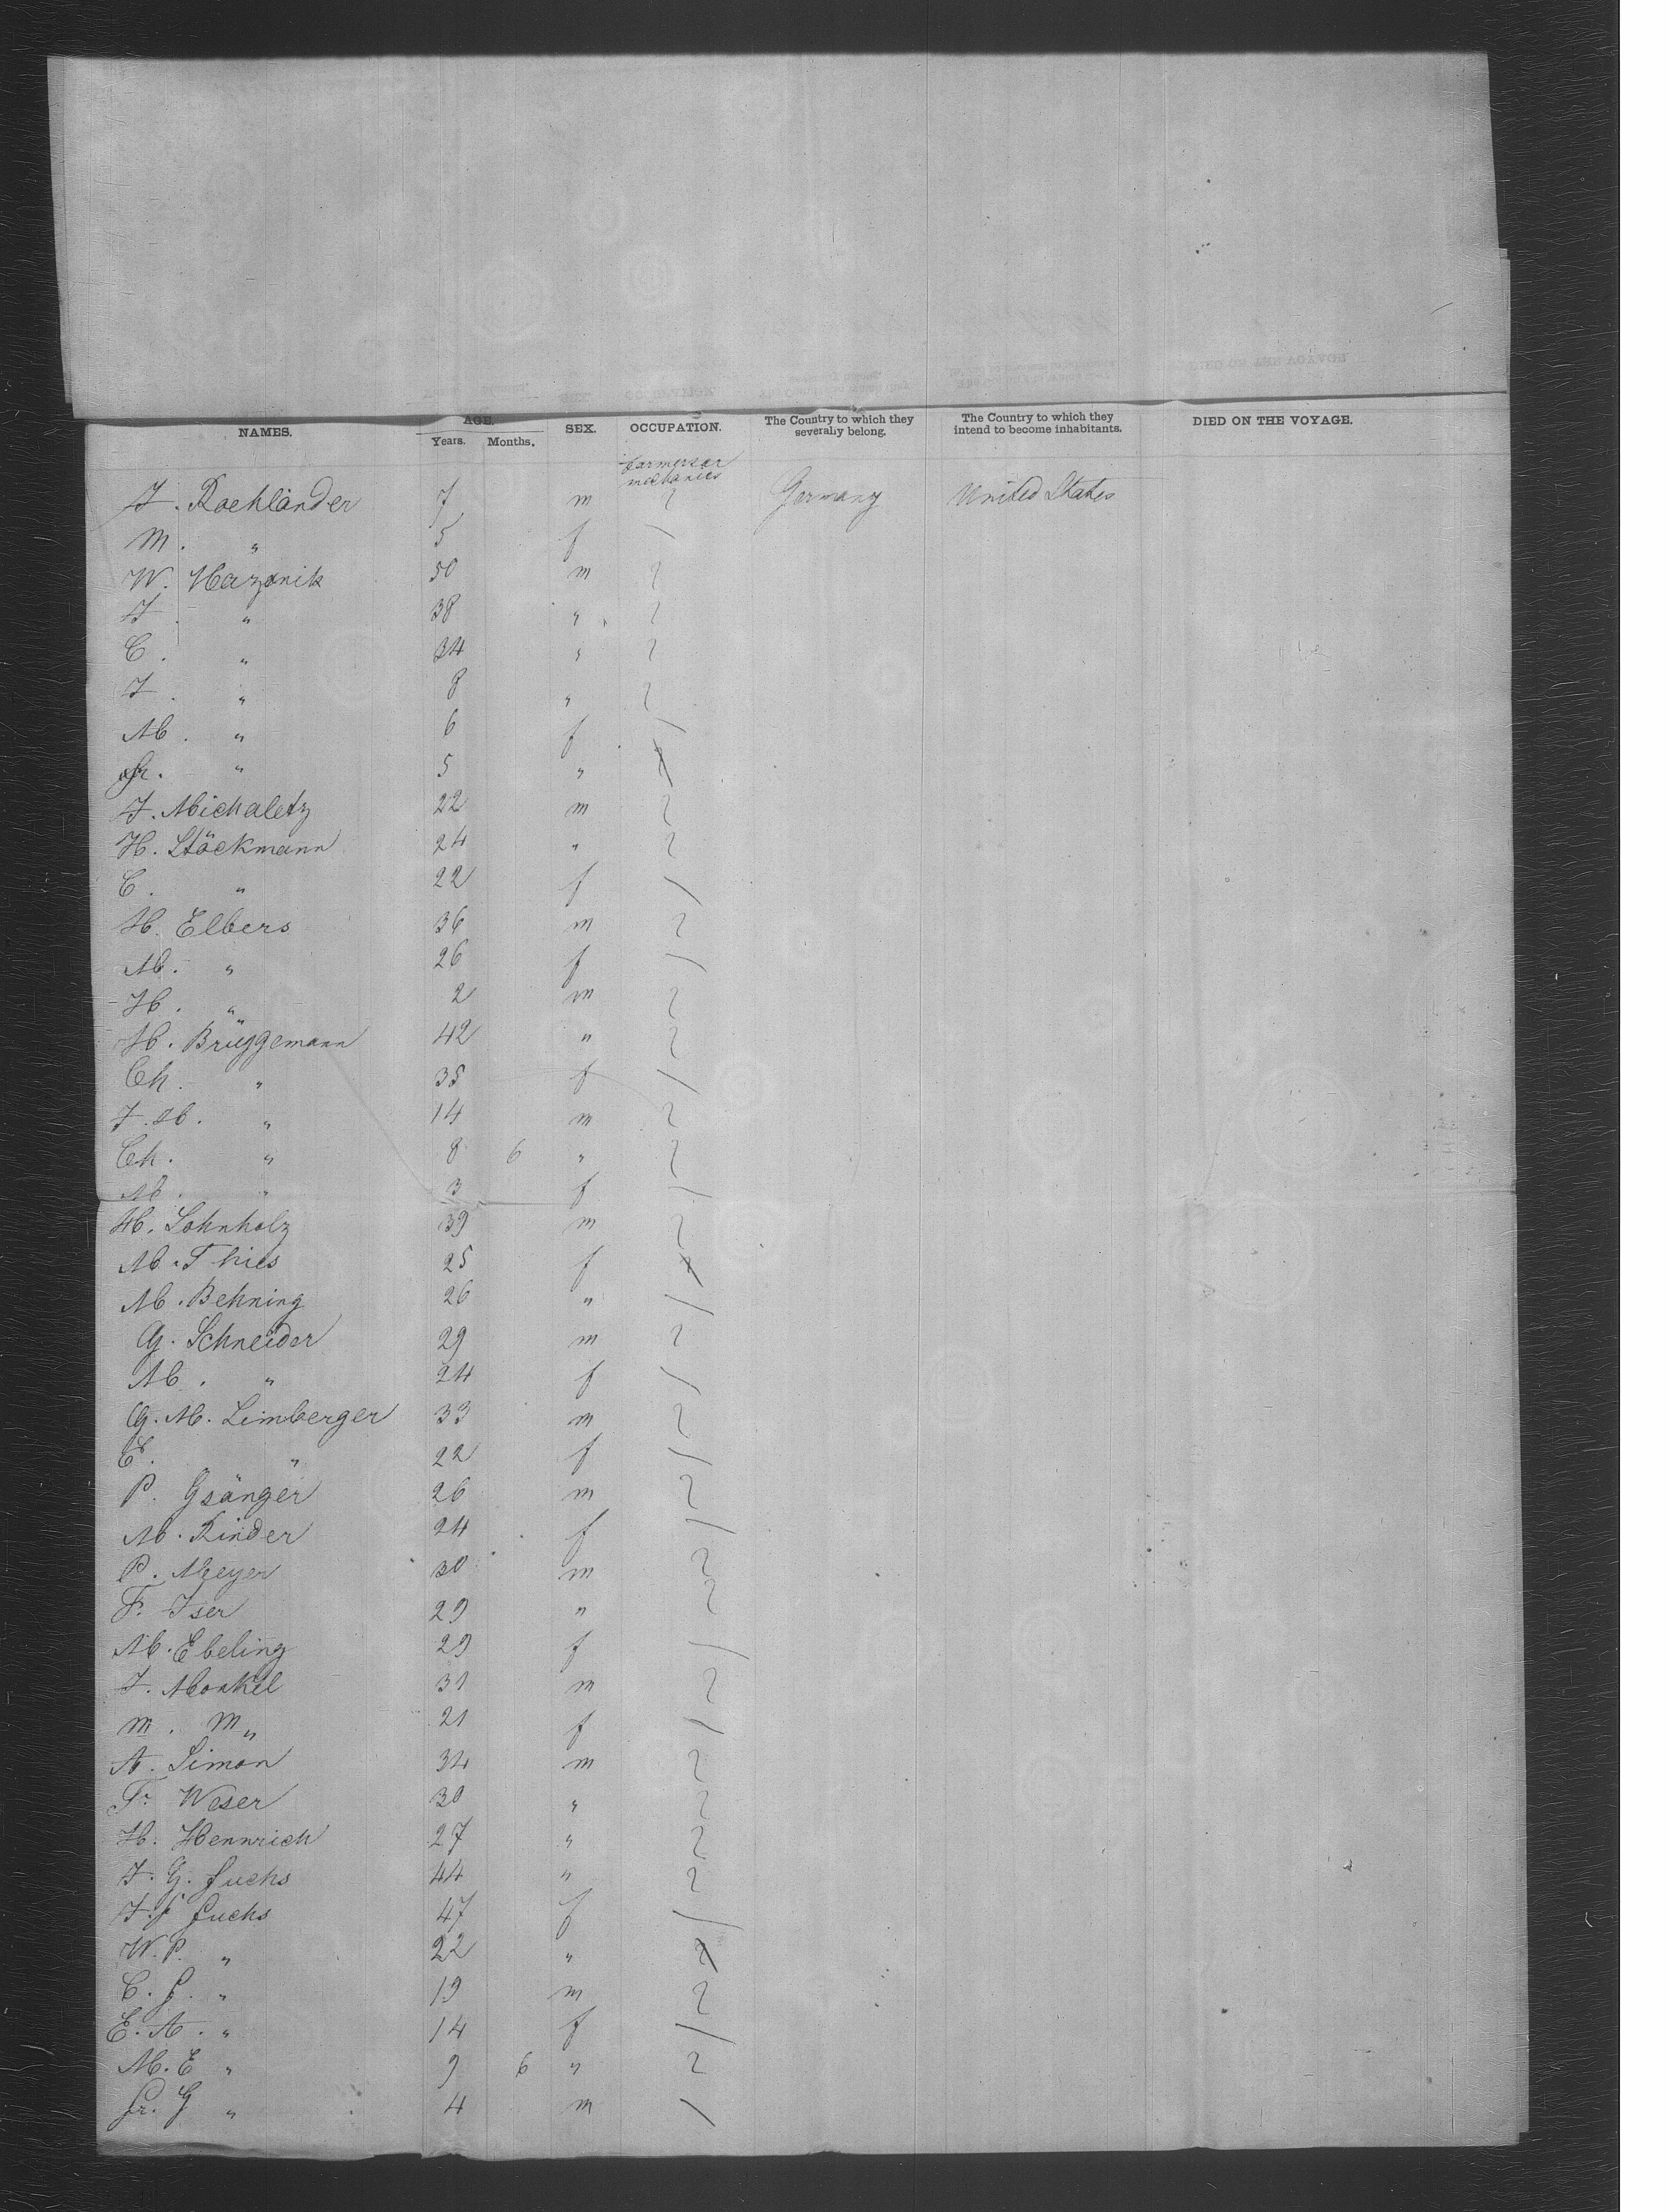 NAMES. AGE. Years. Months. SEX. OCCUPATION. The Country to which they severally belong. The Country to which they intend to become inhabitants. DIED ON THE VOYAGE.
farmers or mechanics
J. Roehländer 7 m Germany United States
M. " 5 f
W. Hazonik 50 m
J. " 38 "
C. " 34 "
J. " 8 "
M. " 6 f
Fr. " 5 "
J. Michaletz 22 m
H. Stöckmann 24 "
C. " 22 f
H. Elbers 36 m
M. " 26 f
H. " 2 m
H. Brüggemann 42 "
Ch. " 35 f
J. H. " 14 m
Ch. " 8 6 "
M. " 3 f
H. Lohnholz 39 m
M. Thies 25 f
M. Behning 26 "
G. Schneider 29 m
M. " 24 f
G. M. Limberger 33 m
E. " 22 f
P. Gsänger 26 m
M. Kinder 24 f
P. Meyer 30 m
F. Iser 29 "
M. Ebeling 29 f
J. Monkel 31 m
m. M " 21 f
A. Simon 34 m
Fr. Weser 30 "
H. Hennrich 27 "
J. G. Fuchs 44 "
J. F. Fuchs 47 f
W. P. " 22 "
C. F. " 19 m
E. A. " 14 f
M. E " 9 6 "
Fr. G " 4 m